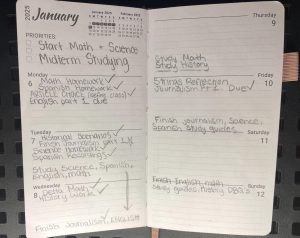 2025
January
January 2025
February 2025
PRIORITIES:
Start Math + Science
Midterm Studying
Monday
6
Math Homework
Spanish Homework
ARTICLE CHOICE (seans class)
English part 2 due
Tuesday
7
Historical Scenarios
Finish Journalism part
Science Homework
Spanish Recordings
Study Science, Spanish,
English, math
Wednesday
8
Delta Math
History Work
Finish Journalism, ENGLISH
Thursday
9
Study Math
Study History
Friday
10
Strings Reflection
Journalism Pt 1 Due
Finish Journalism, Science,
Spanish, Study guides
Saturday
11
Finish English, math
Study guides, history DBQ's
Sunday
12